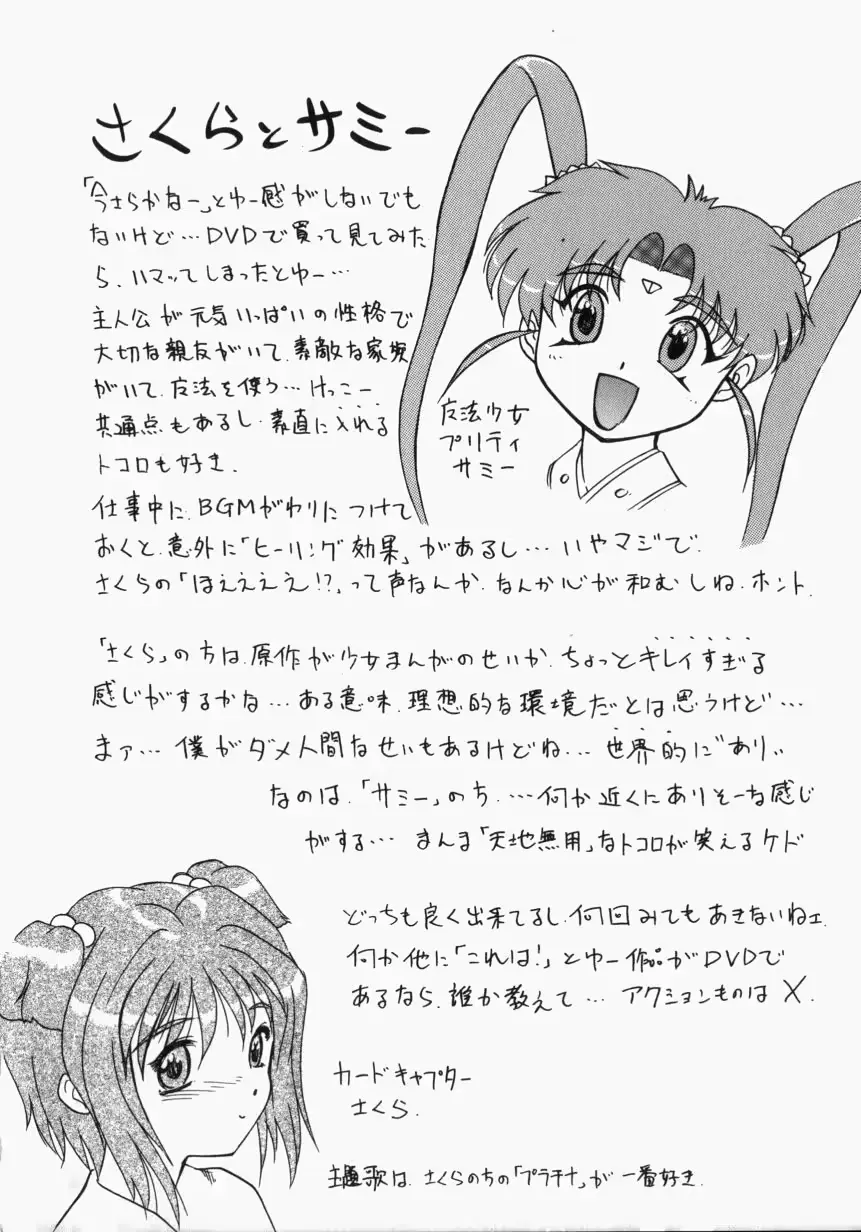 さくらとサミー
「今さらかなー」とゆー感がしないでも
ないけど…DVDで買って見てみた
ら、ハマッてしまったとゆー…
主人公が元気いっぱいの性格で
大切な親友がいて、素敵な家族
がいて、广法を使う…けっこー
共通点もあるし、素直に入れる
トコロも好き.
仕事中に、BGMがわりにつけて
おくと、意外に「ヒーリング効果」があるし…いやマジで.
さくらの「ほええええ!?」って声なんか、なんか心が和むしね、ホント.
「さくら」の方は、原作が少女まんがのせいか、ちょっとキレイすぎる
感じがするかな…ある意味、理想的な環境だとは思うけど…
まァ…僕がダメ人間なせいもあるけどね…世界的に"あり"
なのは、「サミー」のち、…何か近くにありそーな感じ
がする…まんま「天地無用」なトコロが笑えるケド
どっちも良く出来てるし、何回みてもあきないねェ.
何か他に「これは!」とゆー作品がDVDで
あるなら、誰か教えて…アクションものは×.
广法少女
プリティ
サミー
カードキャプター
さくら.
主題歌は、さくらのちの「プラチナ」が一番好き.